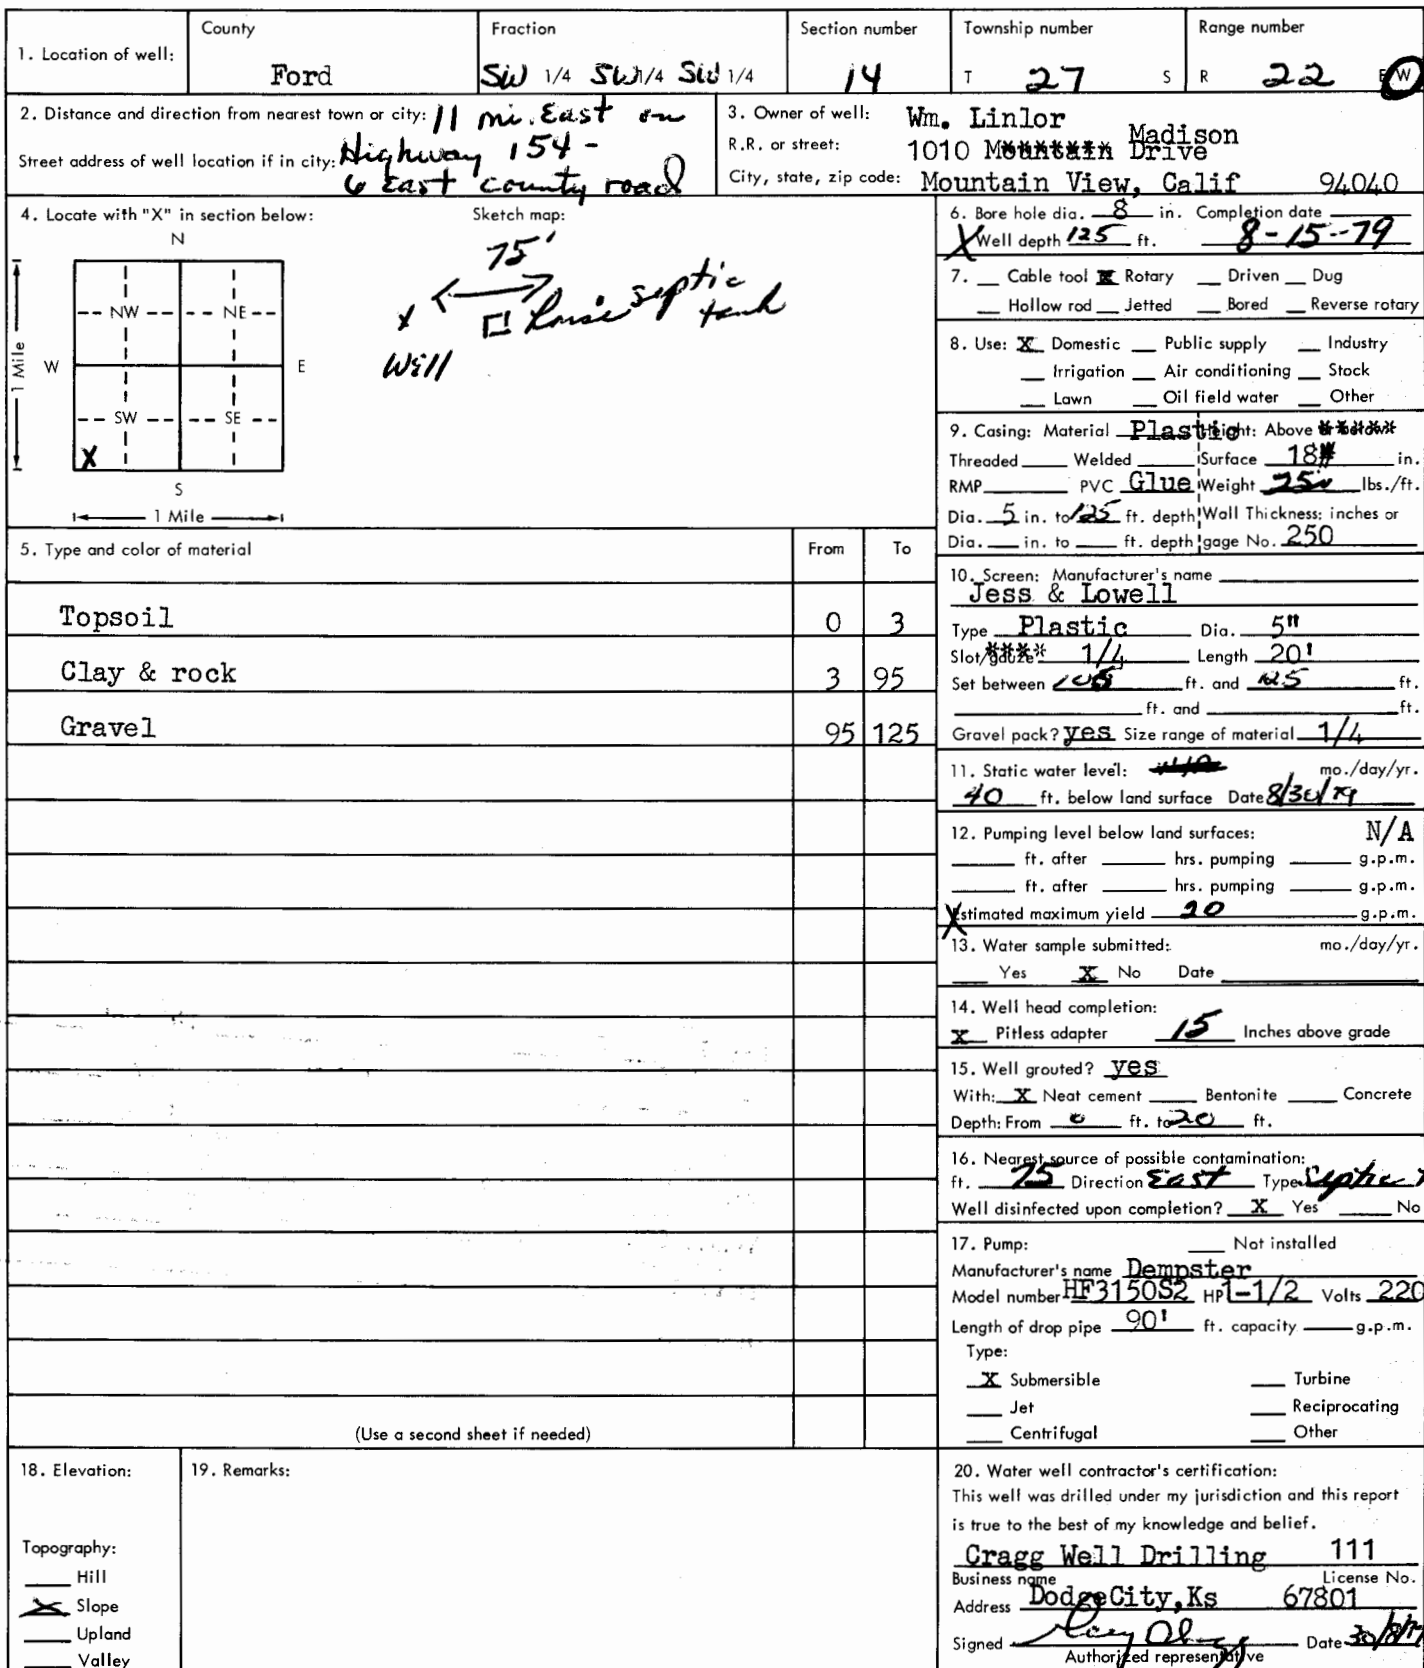 1. Location of well:
County
Ford
Fraction
SW 1/4 SW 1/4 SW 1/4
Section number
14
Township number
T 27 S
Range number
R 22 E W
2. Distance and direction from nearest town or city: 11 mi. East on
Street address of well location if in city: Highway 154 -
6 East county road
3. Owner of well: Wm. Linlor
R.R. or street: 1010 Madison Drive
City, state, zip code: Mountain View, Calif 94040
4. Locate with "X" in section below:
Sketch map:
N
NW NE
W E
SW SE
X
S
1 Mile
1 Mile
75'
X
Well
house septic
tank
5. Type and color of material From To
Topsoil 0 3
Clay & rock 3 95
Gravel 95 125
(Use a second sheet if needed)
6. Bore hole dia. 8 in. Completion date
X Well depth 125 ft. 8-15--79
7. Cable tool X Rotary Driven Dug
Hollow rod Jetted Bored Reverse rotary
8. Use: X Domestic Public supply Industry
Irrigation Air conditioning Stock
Lawn Oil field water Other
9. Casing: Material Plastic Height: Above
Threaded Welded Surface 18 in.
RMP PVC Glue Weight lbs./ft.
Dia. 5 in. to 125 ft. depth Wall Thickness: inches or
Dia. in. to ft. depth gage No. 250
10. Screen: Manufacturer's name
Jess & Lowell
Type Plastic Dia. 5"
Slot/gauze 1/4 Length 20'
Set between 105 ft. and 125 ft.
ft. and ft.
Gravel pack? yes Size range of material 1/4
11. Static water level: mo./day/yr.
40 ft. below land surface Date 8/30/79
12. Pumping level below land surfaces: N/A
ft. after hrs. pumping g.p.m.
ft. after hrs. pumping g.p.m.
X Estimated maximum yield 20 g.p.m.
13. Water sample submitted: mo./day/yr.
Yes X No Date
14. Well head completion:
X Pitless adapter 15 Inches above grade
15. Well grouted? yes
With: X Neat cement Bentonite Concrete
Depth: From 0 ft. to 20 ft.
16. Nearest source of possible contamination:
ft. 75 Direction East Type Septic T
Well disinfected upon completion? X Yes No
17. Pump: Not installed
Manufacturer's name Dempster
Model number HF3150S2 HP 1-1/2 Volts 220
Length of drop pipe 90' ft. capacity g.p.m.
Type:
X Submersible Turbine
Jet Reciprocating
Centrifugal Other
18. Elevation:
Topography:
Hill
X Slope
Upland
Valley
19. Remarks:
20. Water well contractor's certification:
This well was drilled under my jurisdiction and this report
is true to the best of my knowledge and belief.
Cragg Well Drilling 111
Business name License No.
Address DodgeCity,Ks 67801
Signed Date 30/8/79
Authorized representative